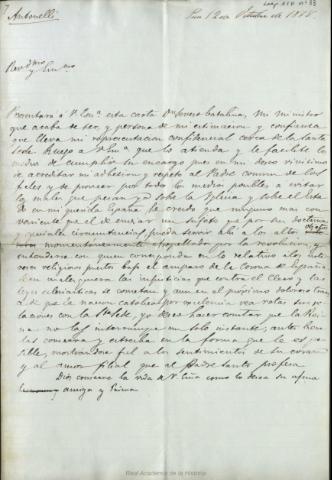 Antonelli
Leg. XXV nº 33
Pau 12 de Octubre de 1868.
Rev.mo
y Em.mo
Presentará a V. Em.ª esta carta Dn Severo Catalina, Mi Ministro
que acaba de ser, y persona de mi estimacion y confianza
que lleva mi representacion confidencial cerca de la Santa
Sede. Ruego a V. Em.ª que lo atienda y le facilite los
medios de cumplir su encargo que es en mi deseo vivisimo
de acreditar mi adhesion y respeto al Padre comun de los
fieles y de procurar por todos los medios posibles, a evitar
los males que pesan ya sobre la Iglesia y sobre el clero
de mi querida España. He creido que ninguno mas con-
veniente que el de enviar un sujeto que por su doctrina
y especiales circunstancias pueda servir ahi a los altos objetos
momentaneamente atropellados por la revolucion, y
entenderse con quien corresponda en lo relativo a los
religiosos puestos bajo el amparo de la Corona de España
las injusticias que contra el Clero y las
leyes eclesiasticas se cometan y aun en el proximo doloroso tran-
ce de que la nacion catolica por excelencia vea rotas sus re-
laciones con la Sta. Sede, yo deseo hacer constar que la Rei-
na no las interrumpe un solo instante, antes bien
las conserva y estrecha en la forma que le es po-
sible, mostrandose fiel a los sentimientos de su corazon
y al amor filial que al Padre Santo profesa.
Dios conserve la vida de V. Em.ª como lo desea su afma
amiga y Prima
Real Academia de la Historia